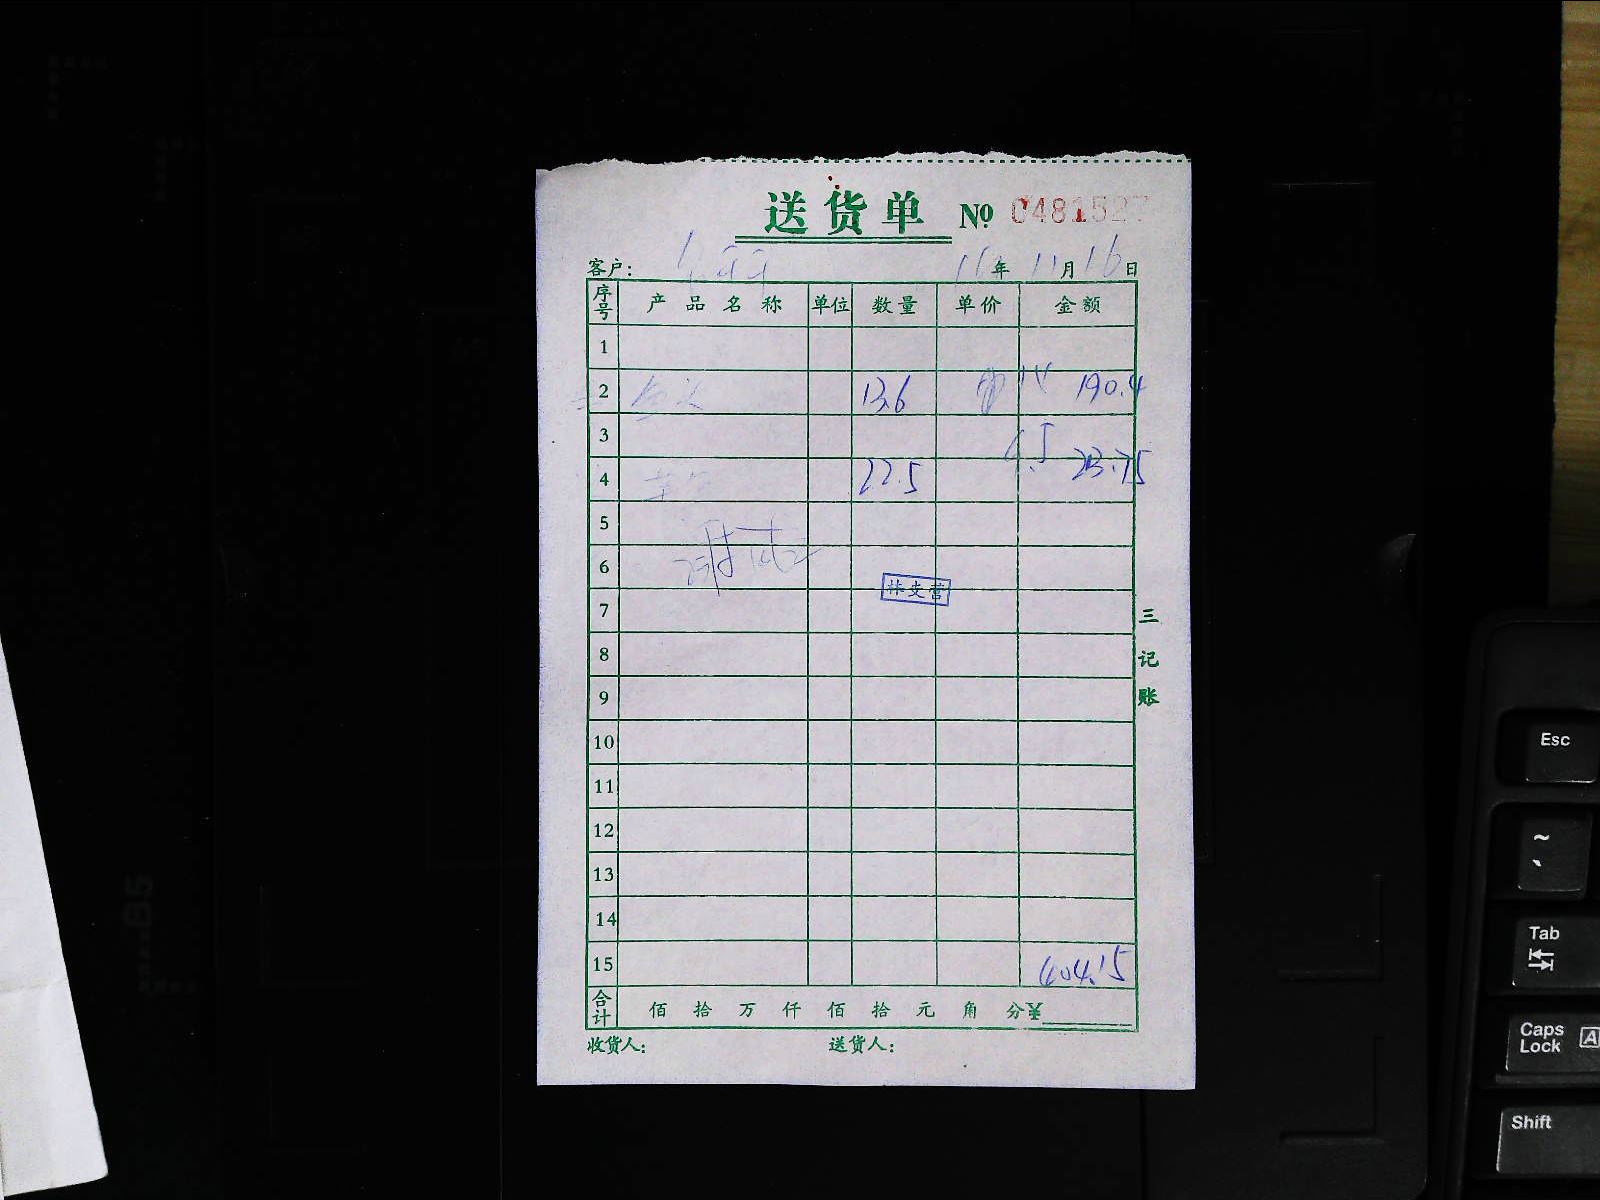 送货单 № 0481527
客户： 16年 11月 16日
序号 产品名称 单位 数量 单价 金额
1
2 13.6 14 190.4
3
4 22.5 213.75
5
6
林支营
7
8
9
10
11
12
13
14
15 404.15
合计 佰 拾 万 仟 佰 拾 元 角 分¥
收货人： 送货人：
三记账
Esc
~
Tab
Caps Lock A
Shift